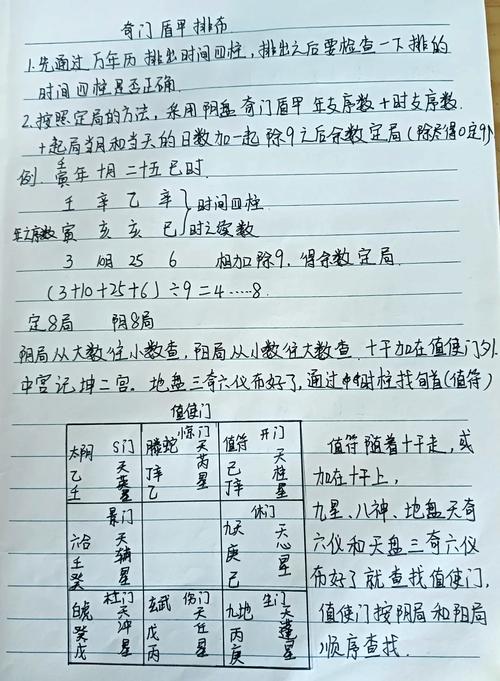 奇门盾甲排布
1.先通过万年历排出时间四柱,排出之后要检查一下排的
时间四柱是否正确.
2.按照定局的方法,采用阴盘奇门盾甲年支序数+时支序数
+起局当月和当天的日数加一起除9之后余数定局(除尽得0定9)
例.壬寅年十月二十五巳时.
壬 辛 乙 辛 时间四柱
年之序数 寅 亥 亥 巳 时之变数
3 10月 25 6 相加除9,得余数定局.
(3+10+25+6)÷9=4……8.
定8局 阴8局
阴局从大数往小数查,阳局从小数往大数查.十干加在值使门外.
中宫记坤二宫.地盘三奇六仪布好了,通过时柱找旬首(值符)
值使门
太阴 S门 乙 天英星 壬
螣蛇 惊门 丁辛 天芮星 乙
值符 开门 己 天柱星 丁辛
景门 六合 天辅星 壬 癸
休门 九天 天心星 庚 己
白虎 杜门 天冲星 癸 戊
玄武 伤门 天任星 戊 丙
九地 生门 天蓬星 丙 庚
值符随着十干走,或
加在十干上,
九星、八神、地盘天奇
六仪和天盘三奇六仪
布好了就查找值使门,
值使门按阴局和阳局
顺序查找.